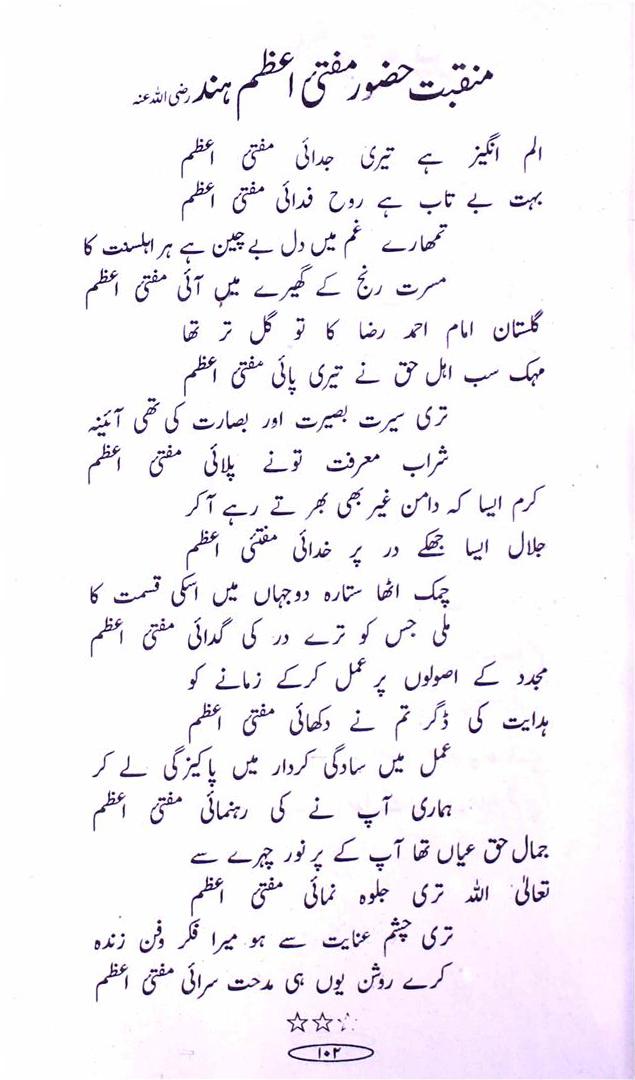 منقبت حضور مفتیٔ اعظم ہند رضی اللہ عنہ
الم انگیز ہے تیری جدائی مفتیٔ اعظم
بہت بے تاب ہے روح فدائی مفتیٔ اعظم
تمھارے غم میں دل بے چین ہے ہر اہلسنت کا
مسرت رنج کے گھیرے میں آئی مفتیٔ اعظم
گلستان امام احمد رضا کا تو گل تر تھا
مہک سب اہل حق نے تیری پائی مفتیٔ اعظم
تری سیرت بصیرت اور بصارت کی تھی آئینہ
شراب معرفت تونے پلائی مفتیٔ اعظم
کرم ایسا کہ دامن غیر بھی بھرتے رہے آکر
جلال ایسا جھکے در پر خدائی مفتیٔ اعظم
چمک اٹھا ستارہ دوجہاں میں اسکی قسمت کا
ملی جس کو ترے در کی گدائی مفتیٔ اعظم
مجدد کے اصولوں پر عمل کرکے زمانے کو
ہدایت کی ڈگر تم نے دکھائی مفتیٔ اعظم
عمل میں سادگی کردار میں پاکیزگی لے کر
ہماری آپ نے کی رہنمائی مفتیٔ اعظم
جمال حق عیاں تھا آپ کے پرنور چہرے سے
تعالیٰ اللہ تری جلوہ نمائی مفتیٔ اعظم
تری چشم عنایت سے ہو میرا فکر وفن زندہ
کرے روشن یوں ہی مدحت سرائی مفتیٔ اعظم
☆☆☆
۱۰۲